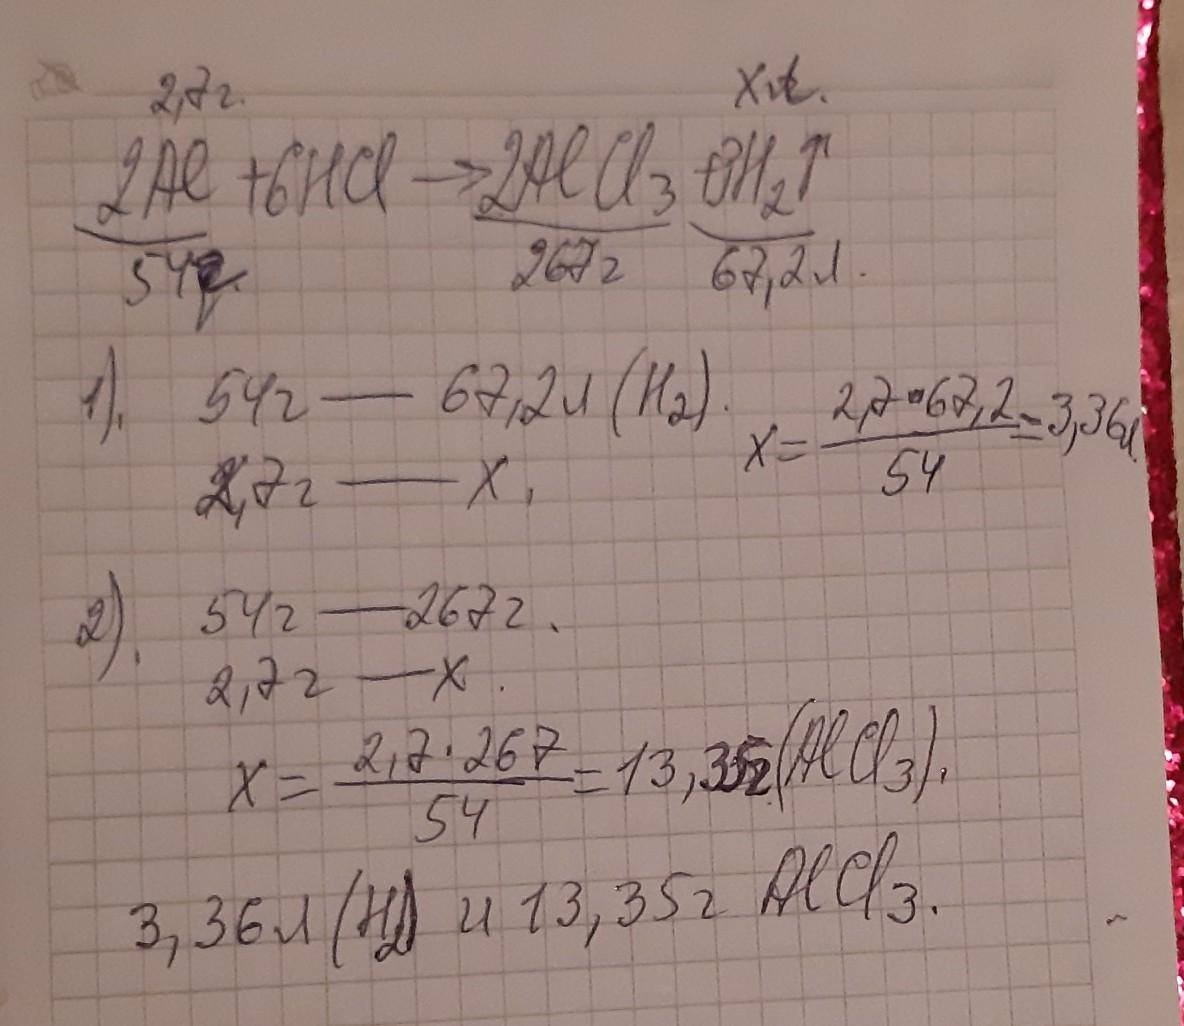 2,7г. х л.
2Al + 6HCl → 2AlCl₃ + 3H₂↑
54г. 267г 67,2л.
1). 54г — 67,2л (H₂).
2,7г — х.
х = 2,7·67,2/54 = 3,36л.
2). 54г — 267г.
2,7г — х.
х = 2,7·267/54 = 13,35г (AlCl₃).
3,36л (H₂) и 13,35г AlCl₃.